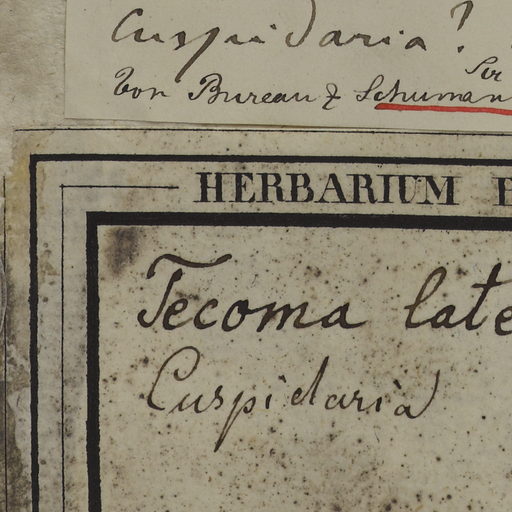 Cuspidaria?
von Bureau & Schuman
HERBARIUM
Tecoma late
Cuspidaria